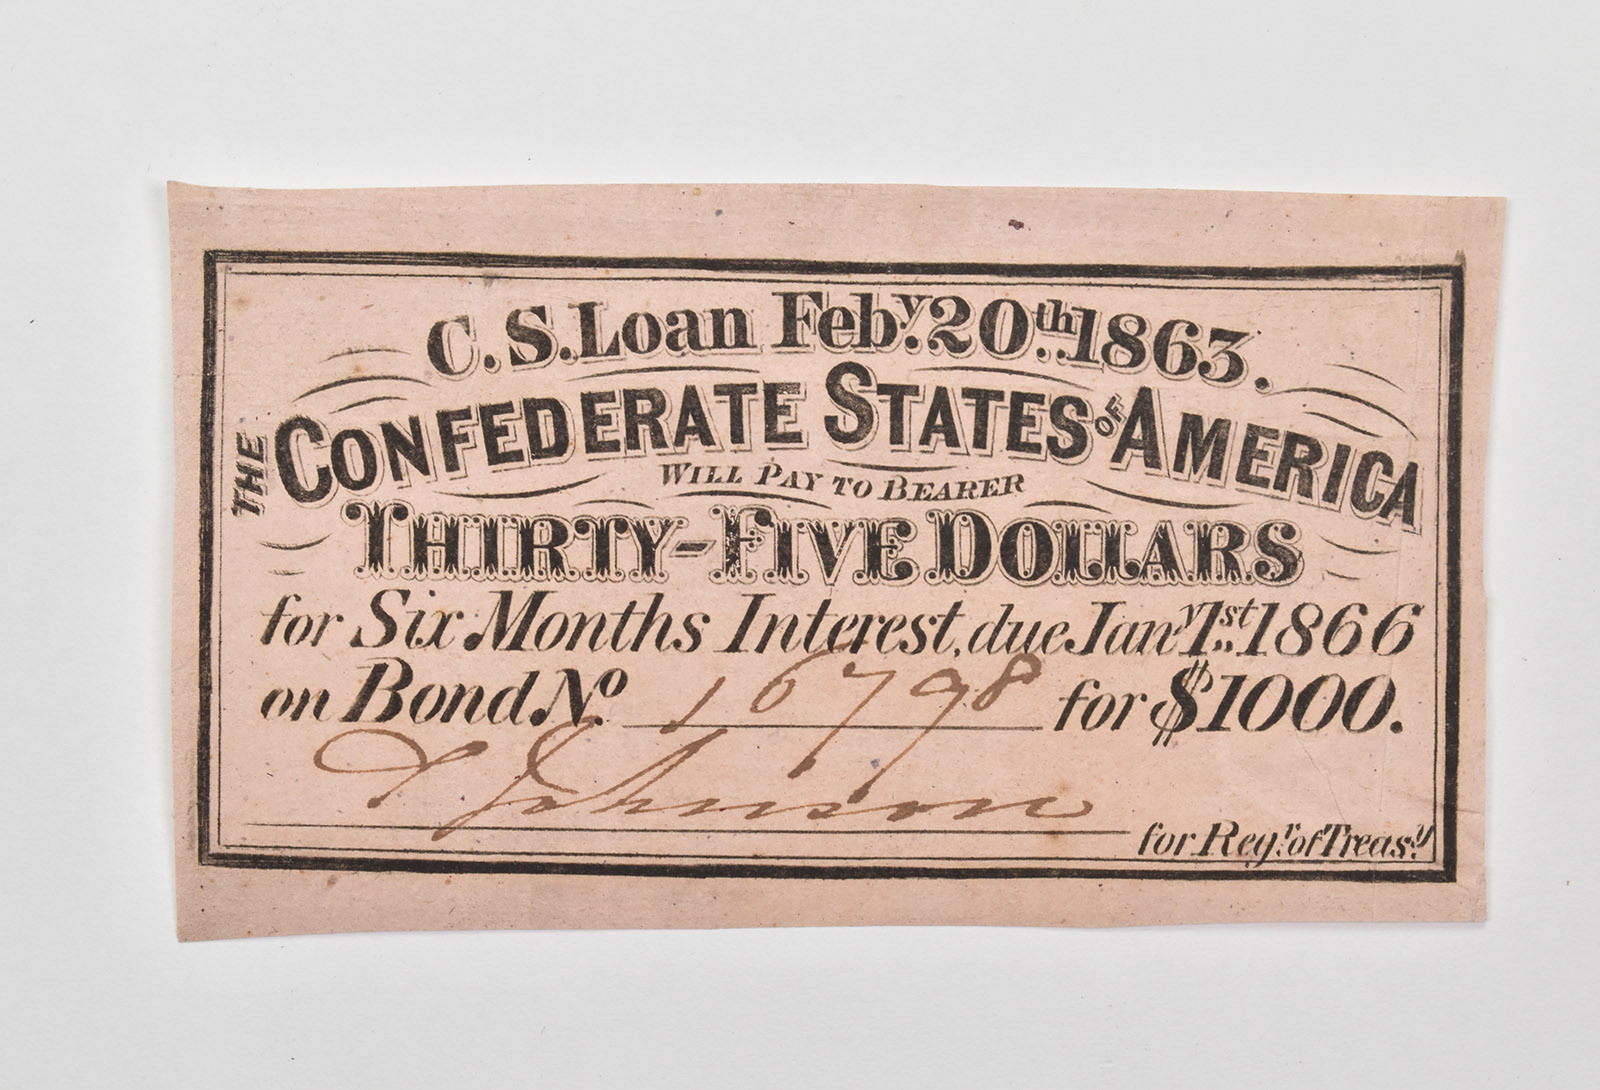 C. S. Loan Feby. 20th. 1863.
THE CONFEDERATE STATES OF AMERICA
WILL PAY TO BEARER
THIRTY-FIVE DOLLARS
for Six Months Interest, due Jany 1st. 1866
on Bond No. 16798 for $1000.
Johnson
for Regr. of Treasy.